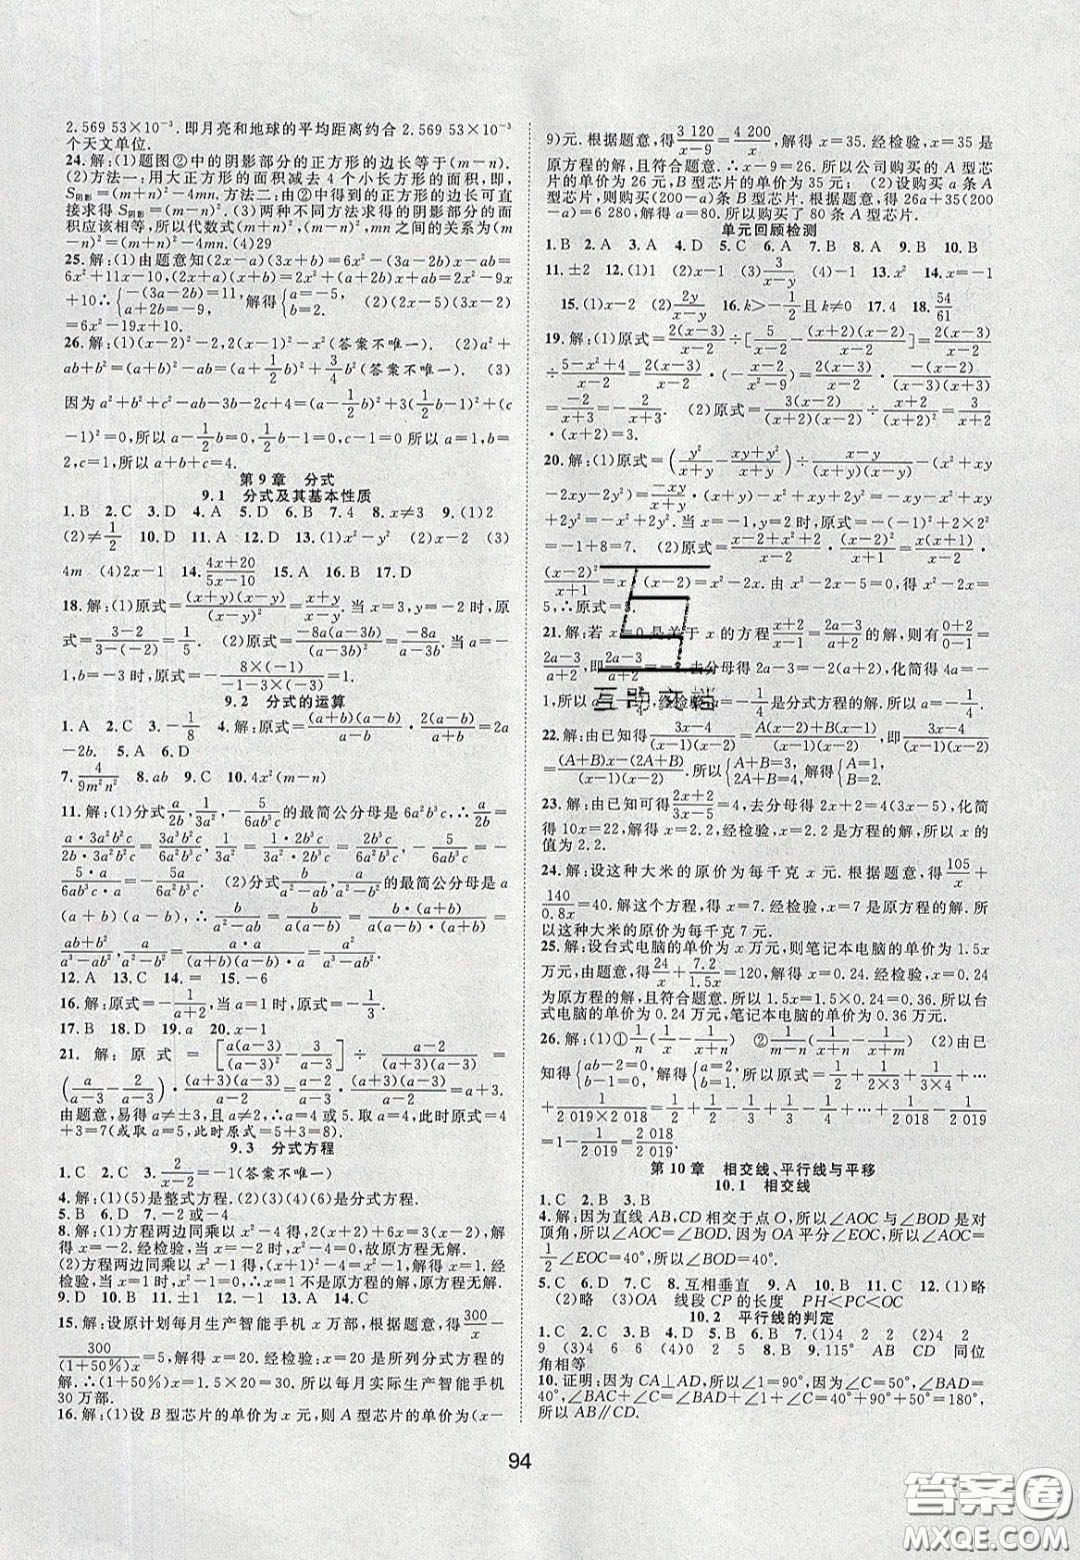 2.569 53×10⁻³.即月亮和地球的平均距离约合 2.569 53×10⁻³
个天文单位.
24.解:(1)题图②中的阴影部分的正方形的边长等于(m−n).
(2)方法一:用大正方形的面积减去 4 小长方形的面积,即,
S阴影=(m+n)²−4mn. 方法二:由②中得到的正方形的边长可
直接求得 S阴影=(m−n)². (3)两种不同方法求得的阴影部分的面
积应该相等,所以代数式(m+n)²,(m−n)²,mn之间的关系为(m
−n)²=(m+n)²−4mn.(4)29
25.解:(1)由题意知(2x−a)(3x+b)=6x²−(3a−2b)x−ab=
6x²+11x−10,(2x+a)(x+b)=2x²+(a+2b)x+ab=2x²−9x
+10∴{−(3a−2b)=11, a+2b=−9,解得{a=−5, b=2. (2)(2x−5)(3x−2)=
6x²−19x+10.
26.解:(1)(x−2)²−2,2(x−1)²−x²(答案不唯一) (2)a²+
ab+b²=(a+b)²−ab=(a+1/2 b)²+3/4 b²(答案不唯一). (3)
因为 a²+b²+c²−ab−3b−2c+4=(a−1/2 b)²+3(1/2 b−1)²+(c
−1)²=0,所以 a−1/2 b=0,1/2 b−1=0,c−1=0所以 a=1,b=
2,c=1,所以 a+b+c=4.
第 9 章 分式
9.1 分式及其基本性质
1.B 2.C 3.D 4.A 5.D 6.B 7.4 8.x≠3 9.(1)2
(2)≠1/2 10.D 11.A 12.D 13.(1)x²−y² (2)x−2 (3)
4m (4)2x−1 14.(4x+20)/(5x−10) 15.A 16.A 17.D
18.解:(1)原式=(x+y)(x−y)/(x−y)²=(x+y)/(x−y). 当 x=3,y=−2 时,原
式=(3−2)/(3−(−2))=1/5. (2)原式=−8a(a−3b)/(a−3b)²=−8a/(a−3b). 当 a=
−1,b=1 时,原式=−(8×(−1))/(−1−3×1).
9.2 分式的运算
1.A 2.A 3.−1/8 4.原式=(a+b)(a−b)/(a−b)·2(a−b)/(a+b)=
2a−2b 5.A 6.D
7.4/(9m²n²) 8.ab 9.C 10.4x²(m−n)
11.解:(1)分式 a/2b,1/3a²,−5/(6ab³c)的最简公分母是 6a²b³c,∴a/2b=
(a·3a²b²c)/(2b·3a²b²c)=3a³b²c/6a²b³c,1/3a²=(1·2b³c)/(3a²·2b³c)=2b³c/6a²b³c,−5/6ab³c=
−(5·a)/(6ab³c·a)=−5a/6a²b³c. (2)分式a/(a²−ab),b/(a²−b²)的最简公分母是 a
(a+b)(a−b),∴a/(a²−ab)=a(a+b)/(a(a−b)(a+b))=
(a²+ab)/(a³−ab²),b/(a²−b²)=ab/(a(a−b)(a+b))=ab/(a³−ab²).
12.A 13.C 14.a 15.−6
16.解:原式=−1/(a+2),当 a=1 时,原式=−1/3.
17.B 18.D 19.a 20.x−1
21.解:原式=[a(a−3)/(a−3)²−3/(a−3)]÷(a−2)/((a+3)(a−3))=
(a/(a−3)−2/(a−3))·(a+3)(a−3)/(a−2)=(a−2)/(a−3)·(a+3)(a−3)/(a−2)=a+3,
由题意,易得 a≠±3,2,∴a=4 或 5.取 a=4,此时原式=4
+3=7(或取 a=5,此时原式=5+3=8).
9.3 分式方程
1.C 2.C 3.2/(x−2)=−1(答案不唯一)
4.解:(1)(5)是整式方程.(2)(3)(4)(6)是分式方程.
5.B 6.D 7.D
8.解:(1)方程两边同乘以 x²−4得,2(x+2)+6=x−2,解
得 x=−2.经检验,当 x=−2 时,x²−4=0,故原方程无解.
(2)方程两边同乘以 x²−1得,(x+1)²−4=x²−1,解得 x=1.
经检验,当 x=1 时,x²−1=0,∴x=1不是原方程的解,原方程无解.
9.D 10.B 11.±1 12.−2 13.A 14.C
15.解:设原计划每月生产智能手机 x 万部,根据题意,得300/x
−300/((1+50%)x)=5.解得 x=20.经检验:x=20是所列分式方程的
解.∴(1+50%)x=1.5×20=30.所以每月实际生产智能手机
30 万部.
16.解:(1)设 B 型芯片的单价为 x 元,则 A 型芯片的单价为(x−
9)元. 根据题意,得3 120/(x−9)=4 200/x,解得 x=35.经检验,x=35是
原方程的解,且符合题意.∴x−9=26. 所以公司购买的 A 型芯
片的单价为 26 元,B 型芯片的单价为 35 元; (2)设购买 a 条 A
型芯片,则购买(200−a)条 B 型芯片.根据题意,得 26a+35(200
−a)=6 280,解得 a=80.所以购买了 80 条 A 型芯片.
单元回顾检测
1.B 2.A 3.A 4.D 5.C 6.D 7.A 8.A 9.B 10.B
11.±2 12.(1)1 (2)x−5 (3)3/(x−y) (4)−1 13.x² 14.x=−1
15.(1)x−2 (2)2y/(x−y) 16.k>−1/2且 k≠0 17.4 18.54/61
19.解:(1)原式=2(x−3)/(x−2)÷[5/(x−2)−(x+2)(x−2)/(x−2)]=2(x−3)/(x−2)
÷(5−x²+4)/(x−2)=2(x−3)/(x−2)·(−(x−2)/(x²−9))=2(x−3)/(x−2)·−(x−2)/((x+3)(x−3))=
−2/(x+3)=−2/(x+3). (2)原式=3(x−2)/((x+2)(x−2))÷x/(x+2)²=3/(x+2)·
(x+2)=3.
20.解:(1)原式=(y²/(x+y)−(xy+y²)/(x+y))÷(x−y)/(x+y)−x²
−2xy−2y²=−xy/(x+y)
+2y²=−x²+2y².当 x=1,y=2时,原式=−(−1)²+2×2²
=−1+8=7. (2)原式=(x−2+x²+2)/x÷(x+1)/(x−2)²=x(x+1)/x·
(x−2)²/(x+1)=x (x−2)=x²−2x. 由 x²−2x−5=0,得 x²−2x=
5,∴原式=
21.解:若 x=0 是关于 x 的方程(x+2)/(x−1)=(2a−3)/(x+a)的解,则有(0+2)/(0−1)=
(2a−3)/(0+a),即(2a−3)/a=− 去分母得 2a−3=−2(a+2),化简得 4a=−
1,所以 a 经检验
22.解:由已知得(3x−4)/((x−1)(x−2))=(A(x−2)+B(x−1))/((x−1)(x−2)),即(3x−4)/((x−1)(x−2))
=((A+B)x−(2A+B))/((x−1)(x−2)).所以{A+B=3, 2A+B=4,解得{A=1, B=2.
23.解:由已知可得(2x+2)/(3x−5)=4,去分母得 2x+2=4(3x−5),化简
得 10x=22,解得 x=2.2,经检验,x=2.2 是方程的解,所以 x 的
值为 2.2.
24.解:设这种大米的原价为每千克 x 元.根据题意,得105/x
+140/0.8x=40.解这个方程,得 x=7.经检验,x=7是原方程的解.所
以这种大米的原价为每千克 7 元.
25.解:设台式电脑的单价为 x 万元,则笔记本电脑的单价为 1.5x
万元,由题意,得24/x+7.2/1.5x=120,解得 x=0.24.经检验,x=0.24
为原方程的解,且符合题意.所以 1.5x=1.5×0.24=0.36.所以台
式电脑的单价为 0.24 万元,笔记本电脑的单价为 0.36 万元.
26.解:(1)①1/n(1/x−1/(x+n)) ②1/(m−n)(1/(x+n)−1/(x+m)) (2)由已
知得{ab−2=0, b−1=0,解得{a=2, b=1.所以原式=1/2+1/(2×3)+1/(3×4)+…
+1/(2 019×2 018)=1/2+1/2−1/3+1/3−1/4+…+1/2 018−1/2 019
=1−1/2 019=2 018/2 019.
第 10 章 相交线、平行线与平移
10.1 相交线
1.C 2.C 3.B
4.解:因为直线 AB,CD 相交于点 O,所以∠AOC 与∠BOD 是对
顶角,所以∠AOC=∠BOD. 因为 OA 平分∠EOC,所以∠AOC=
1/2∠EOC=40°,所以∠BOD=40°.
5.C 6.C 7.D 8.互相垂直 9.A 10.B 11.C 12.(1)略
(2)略 (3)OA 线段 CP 的长度 PH<PC<OC
10.2 平行线的判定
1.C 2.C 3.D 4.D 5.B 6.B 7.(1)4 (2)4 2 (3)2
9 (4)3 6 8 2 5 9 8.B 9.115° AB CD 同位
角相等
10.证明:因为 CA⊥AD,所以∠1=90°,又因为∠B=50°,∠2=
40°,∠BAC+∠C=∠BAD+∠1+∠2=40°+90°+50°=180°,
所以 AB∥CD.
94
互助文档
答案圈
MXQE.COM